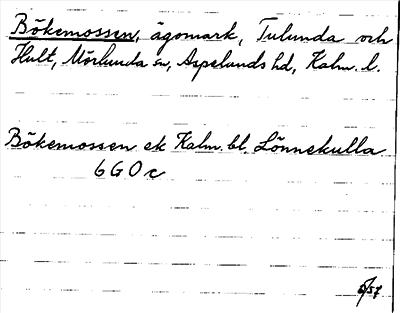 Bökemossen, ägomark, Tulunda och
Hult, Mörlunda sn, Aspelands hd, Kalm. l.
Bökemossen ek Kalm. bl. Lönnekulla
6 G O c
5/57